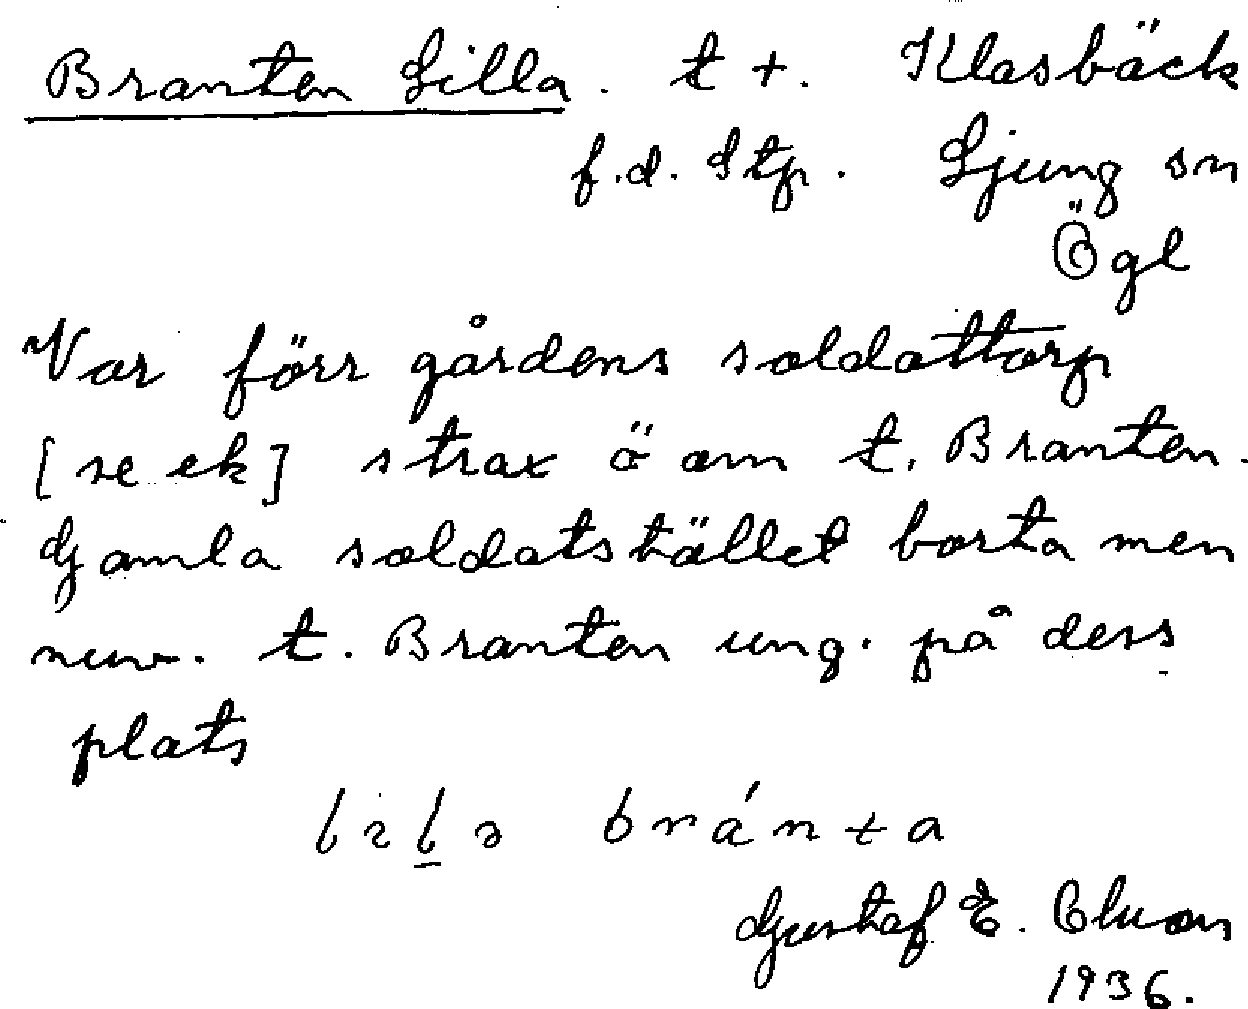 Branten Lilla. t +. Klasbäck
f.d. Stp. Ljung sn
Ögl
Var förr gårdens soldattorp
[se ek] strax ö om t. Branten.
Gamla soldatstället borta men
nuv. t. Branten ung. på dess
plats
Gustaf E.
1936.